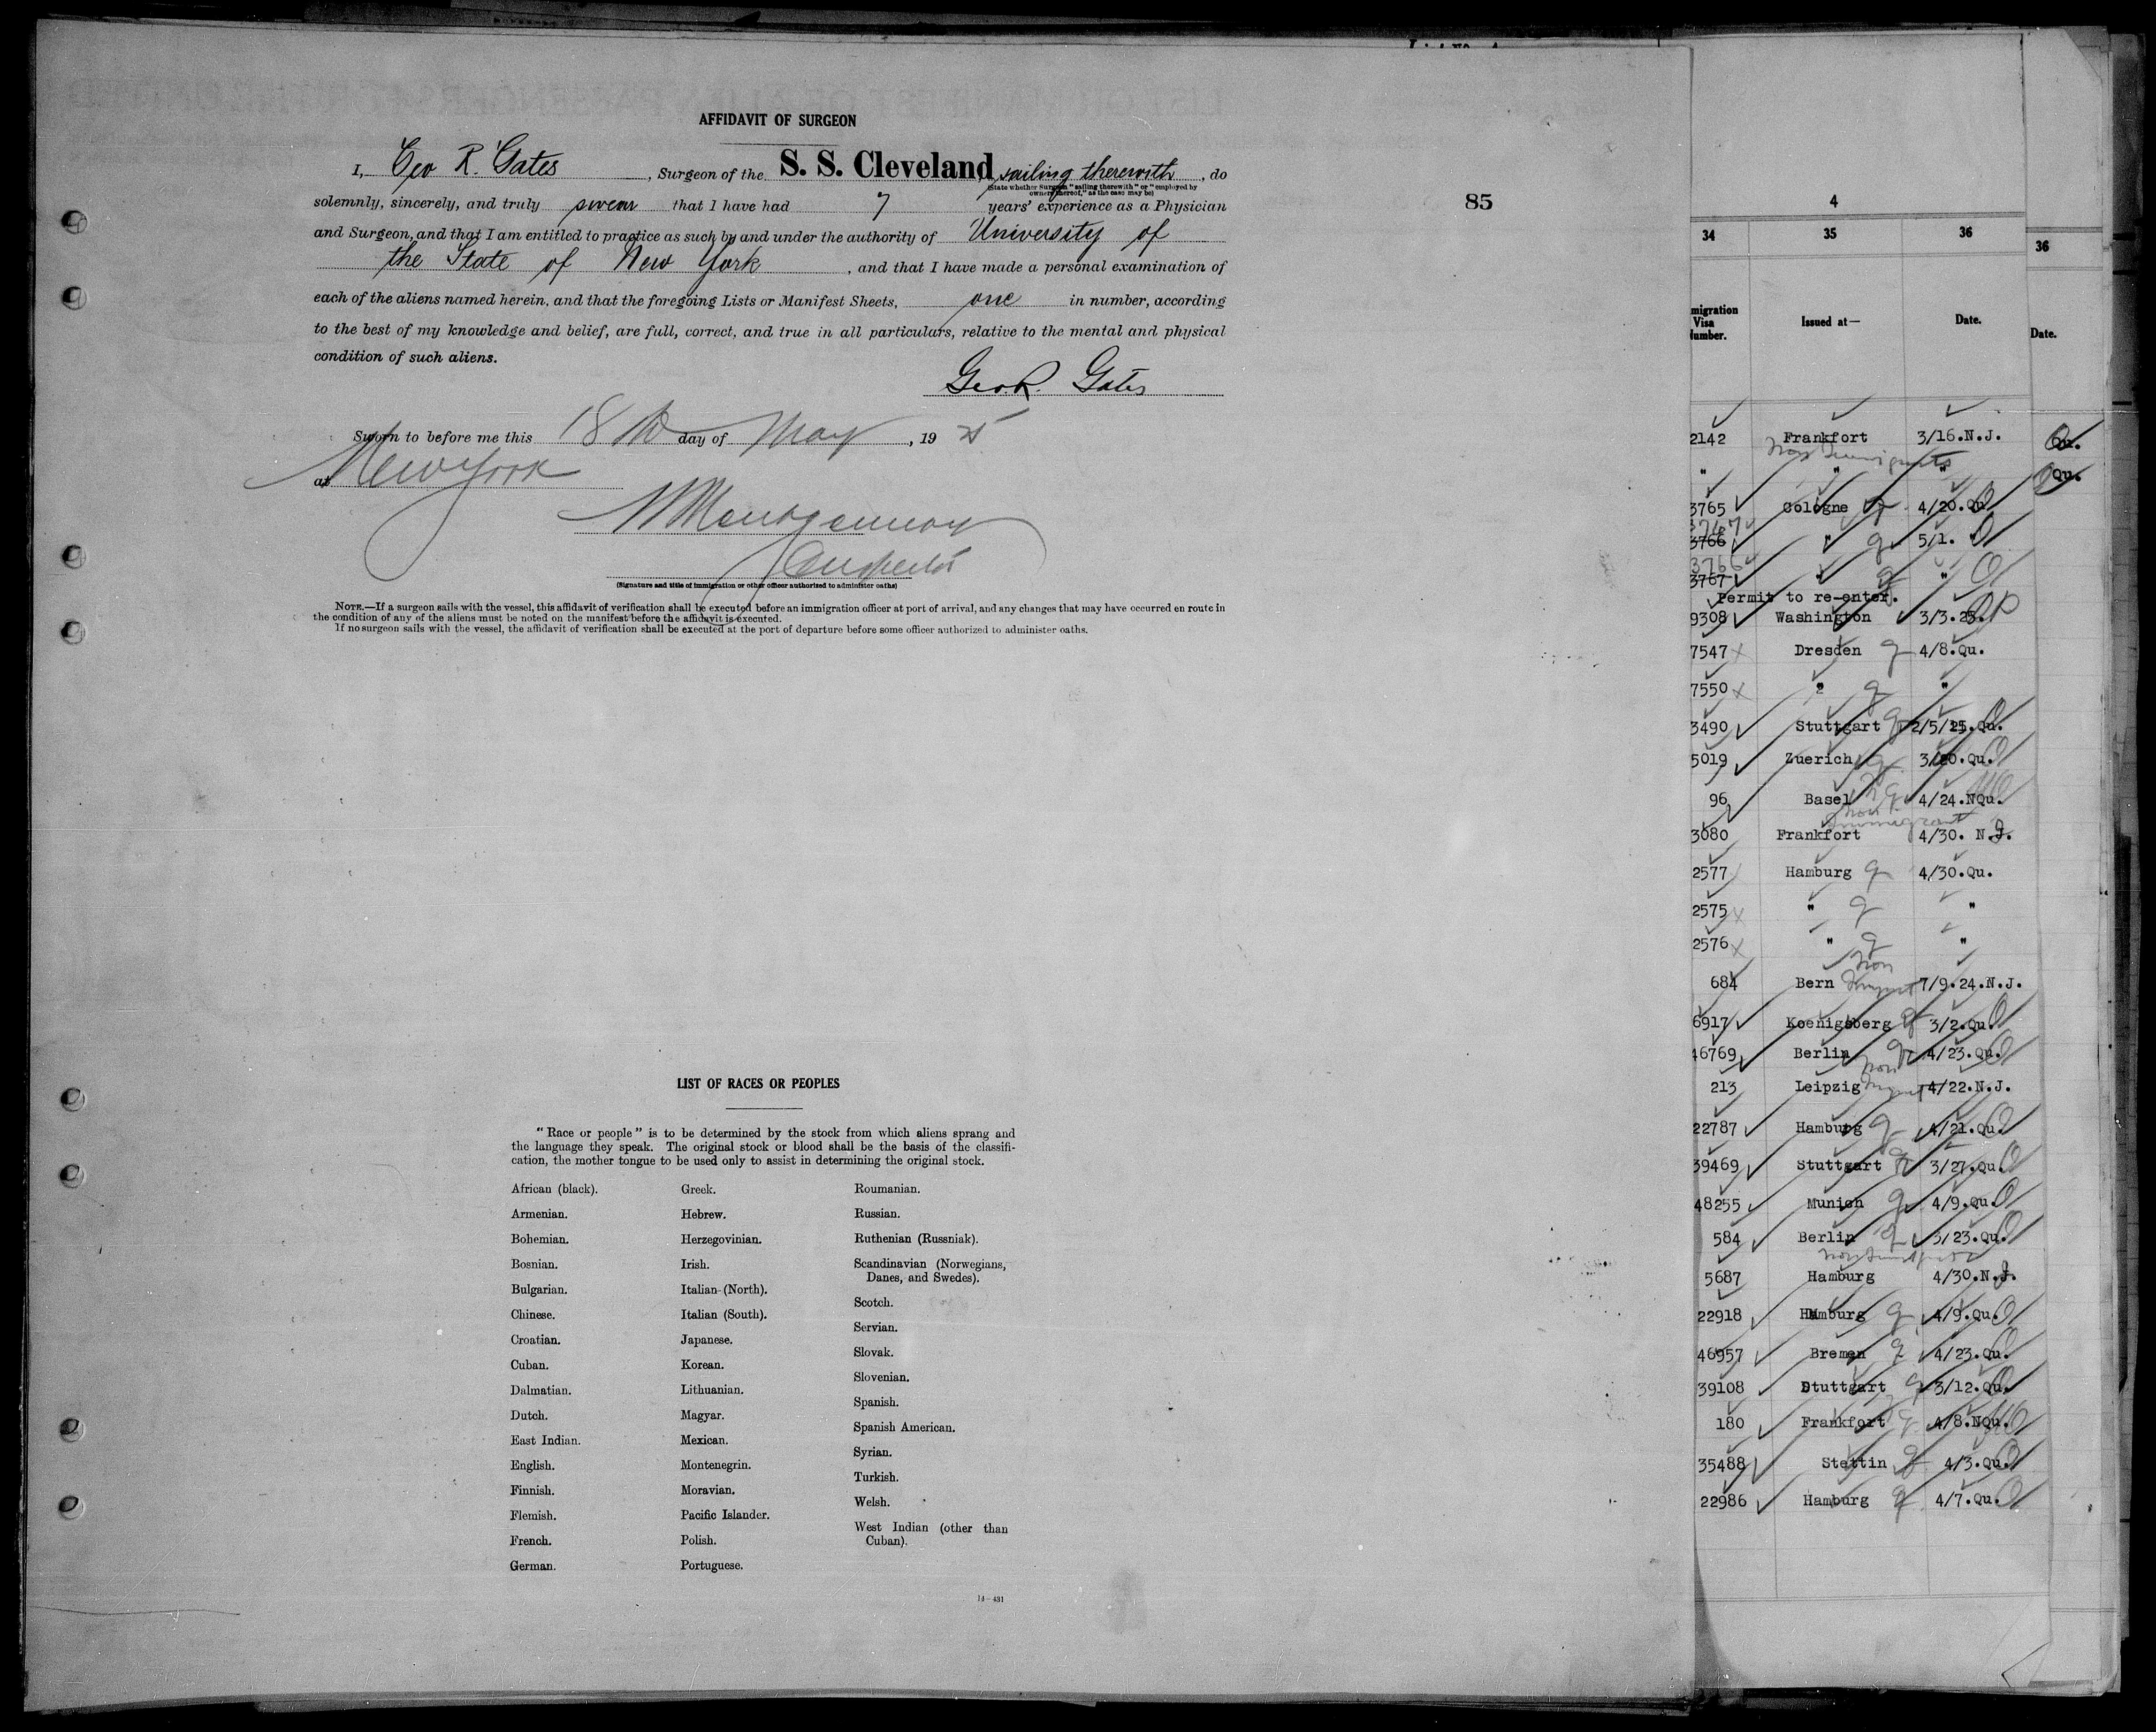 AFFIDAVIT OF SURGEON
I, Geo R. Gates, Surgeon of the S. S. Cleveland, sailing therewith, do
(State whether Surgeon "sailing therewith" or "employed by
owners thereof," as the case may be)
solemnly, sincerely, and truly swear that I have had 7 years' experience as a Physician
and Surgeon, and that I am entitled to practice as such by and under the authority of University of
the State of New York, and that I have made a personal examination of
each of the aliens named herein, and that the foregoing Lists or Manifest Sheets, one in number, according
to the best of my knowledge and belief, are full, correct, and true in all particulars, relative to the mental and physical
condition of such aliens.
Geo. R. Gates
Sworn to before me this 18th day of May, 1925
at New York
Montgomery
Inspector
(Signature and title of immigration or other officer authorized to administer oaths)
NOTE.—If a surgeon sails with the vessel, this affidavit of verification shall be executed before an immigration officer at port of arrival, and any changes that may have occurred en route in
the condition of any of the aliens must be noted on the manifest before the affidavit is executed.
If no surgeon sails with the vessel, the affidavit of verification shall be executed at the port of departure before some officer authorized to administer oaths.
85
LIST OF RACES OR PEOPLES
"Race or people" is to be determined by the stock from which aliens sprang and
the language they speak. The original stock or blood shall be the basis of the classifi-
cation, the mother tongue to be used only to assist in determining the original stock.
African (black).
Armenian.
Bohemian.
Bosnian.
Bulgarian.
Chinese.
Croatian.
Cuban.
Dalmatian.
Dutch.
East Indian.
English.
Finnish.
Flemish.
French.
German.
Greek.
Hebrew.
Herzegovinian.
Irish.
Italian (North).
Italian (South).
Japanese.
Korean.
Lithuanian.
Magyar.
Mexican.
Montenegrin.
Moravian.
Pacific Islander.
Polish.
Portuguese.
Roumanian.
Russian.
Ruthenian (Russniak).
Scandinavian (Norwegians,
Danes, and Swedes).
Scotch.
Servian.
Slovak.
Slovenian.
Spanish.
Spanish American.
Syrian.
Turkish.
Welsh.
West Indian (other than
Cuban).
14—431
4
34 35 36
migration
Visa
Number.
Issued at—
Date.
2142 Frankfort 3/16.N.J.
Non Immigrants
" " "
3765 Cologne q 4/20.Qu
3767
3766 " q 5/1. "
3766
3767 " q "
Permit to re-enter.
9308 Washington 3/3.25.
7547 Dresden q 4/8.Qu.
7550 " q "
3490 Stuttgart q 2/5/25.Qu.
5019 Zuerich q 3/20.Qu.
96 Basel 4/24.NQu.
Non
Immigrant
3080 Frankfort 4/30. N.J.
2577 Hamburg q 4/30.Qu.
2575 " q "
2576 " q "
Non
684 Bern 7/9.24.N.J.
6917 Koenigsberg q 3/2.Qu.
46769 Berlin q 4/23.Qu.
Non
213 Leipzig 4/22.N.J.
22787 Hamburg q 4/21.Qu.
39469 Stuttgart q 3/27.Qu.
48255 Munich q 4/9.Qu.
584 Berlin q 3/23.Qu.
Non Immigrant
5687 Hamburg 4/30.N.J.
22918 Hamburg q 4/9.Qu.
46957 Bremen q 4/23.Qu.
39108 Stuttgart q 3/12.Qu.
180 Frankfort 4/8.NQu.
35488 Stettin q 4/3.Qu.
22986 Hamburg q 4/7.Qu.
36
Date.
Qu.
Qu.